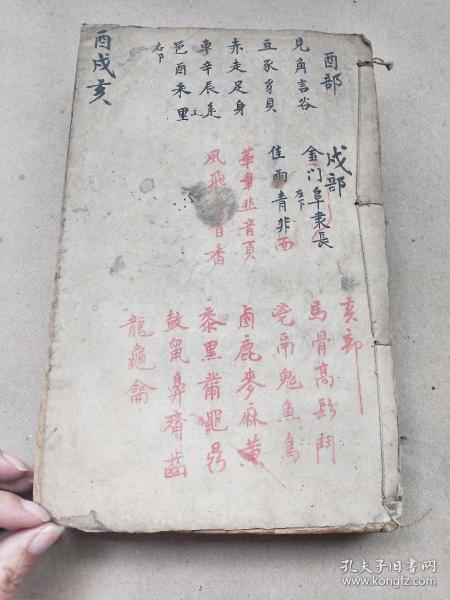 酉戌亥
酉部
見角言谷
豆豕豸貝
赤走足身
車辛辰辵
邑酉釆里
右下
戌部
金门阜隶長
左下
隹雨青非面
革韋韭音頁
風飛首香
亥部
馬骨高髟鬥
鬯鬲鬼魚鳥
鹵鹿麥麻黃
黍黑黹黽鼎
鼓鼠鼻齊齒
龍龜龠
孔夫子旧书网
www.kongfz.com